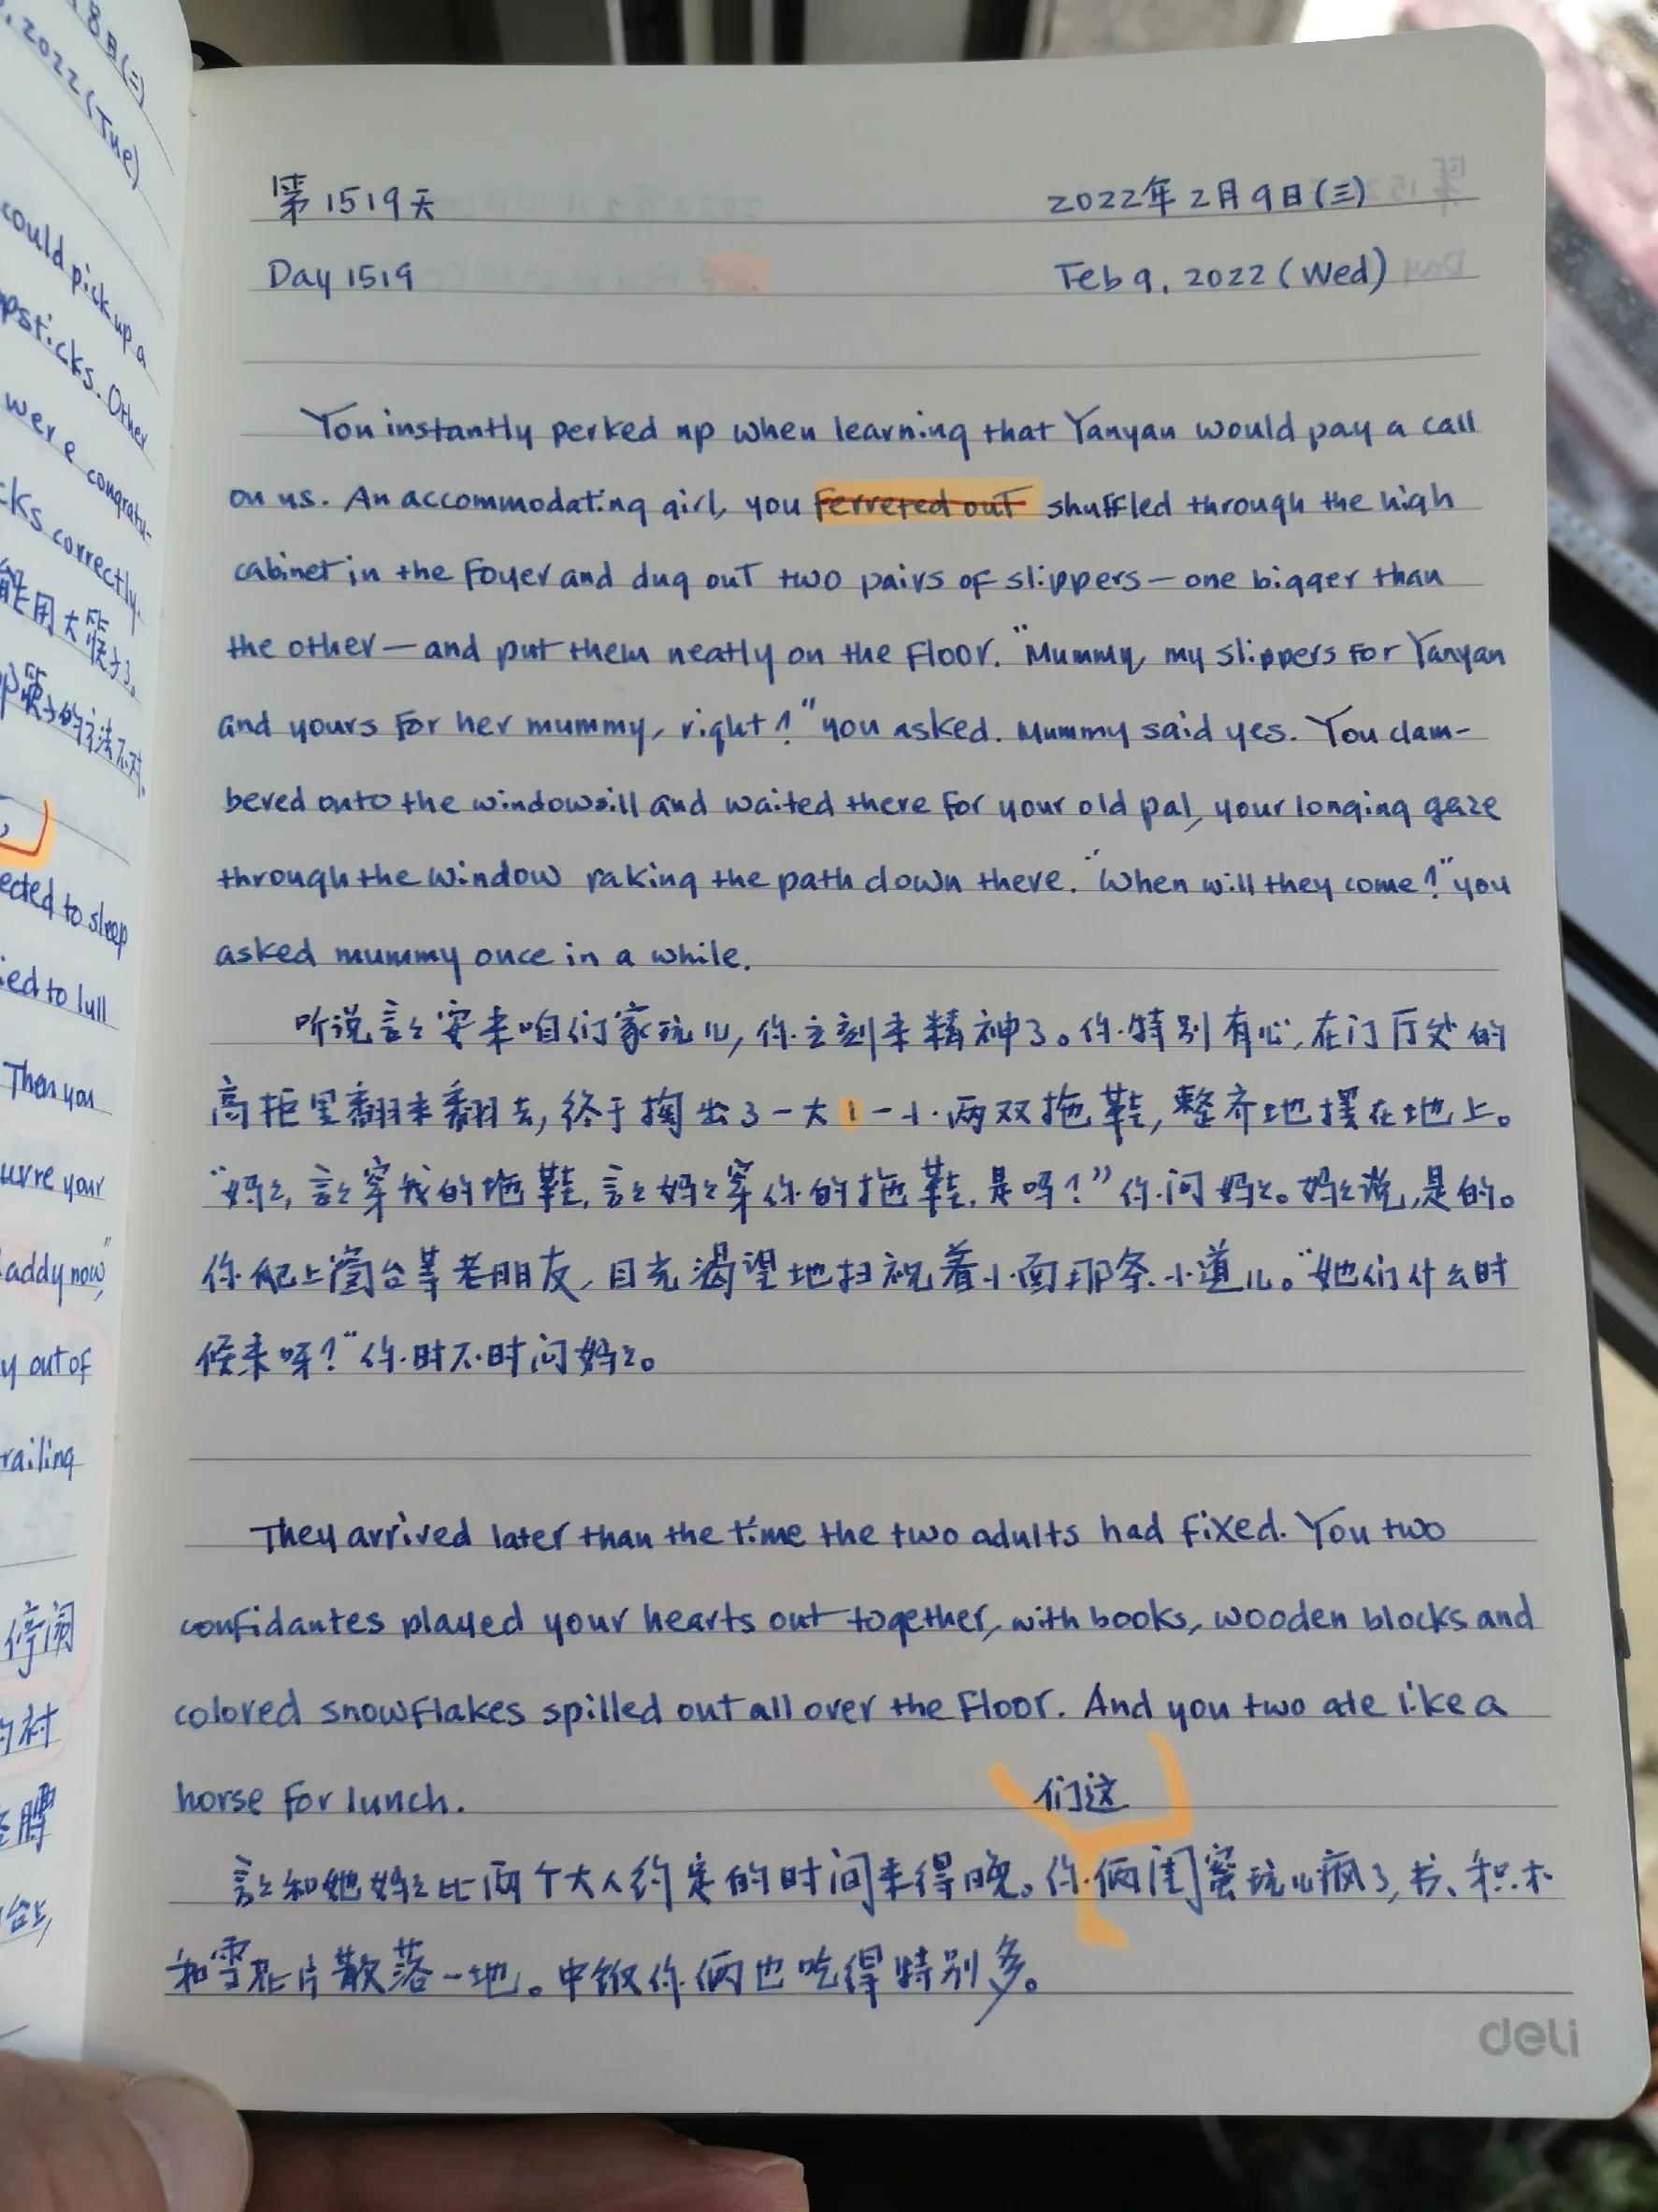 8日(二)
, 2022 (Tue)
could pick up a
psticks. Other
were congratu-
cks correctly.
能用大筷子了。
筷子的方法不对,
ected to sleep
ied to lull
Then you
uvre your
addy now,"
y out of
railing
停闹
的衬
台上,
第1519天 2022年2月9日(三)
Day 1519 Feb 9, 2022 (Wed)
You instantly perked up when learning that Yanyan would pay a call
on us. An accommodating girl, you ferreted out shuffled through the high
cabinet in the foyer and dug out two pairs of slippers — one bigger than
the other — and put them neatly on the floor. "Mummy, my slippers for Yanyan
and yours for her mummy, right?" you asked. Mummy said yes. You clam-
bered onto the windowsill and waited there for your old pal, your longing gaze
through the window raking the path down there. "When will they come?" you
asked mummy once in a while.
听说言言要来咱们家玩儿,你立刻来精神了。你特别有心,在门厅处的
高柜里翻来翻去,终于掏出了一大一小两双拖鞋,整齐地摆在地上。
"妈妈,言言穿我的拖鞋,言言妈妈穿你的拖鞋,是吗?"你问妈妈。妈妈说,是的。
你爬上窗台等老朋友,目光渴望地扫视着小面那条小道儿。"她们什么时
候来呀?"你时不时问妈妈。
They arrived later than the time the two adults had fixed. You two
confidantes played your hearts out together, with books, wooden blocks and
colored snowflakes spilled out all over the floor. And you two ate like a
horse for lunch.
们这
言言和她妈妈比两个大人约定的时间来得晚。你俩闺蜜玩儿疯了,书、积木
和雪花片散落一地。中饭你俩也吃得特别多。
deli